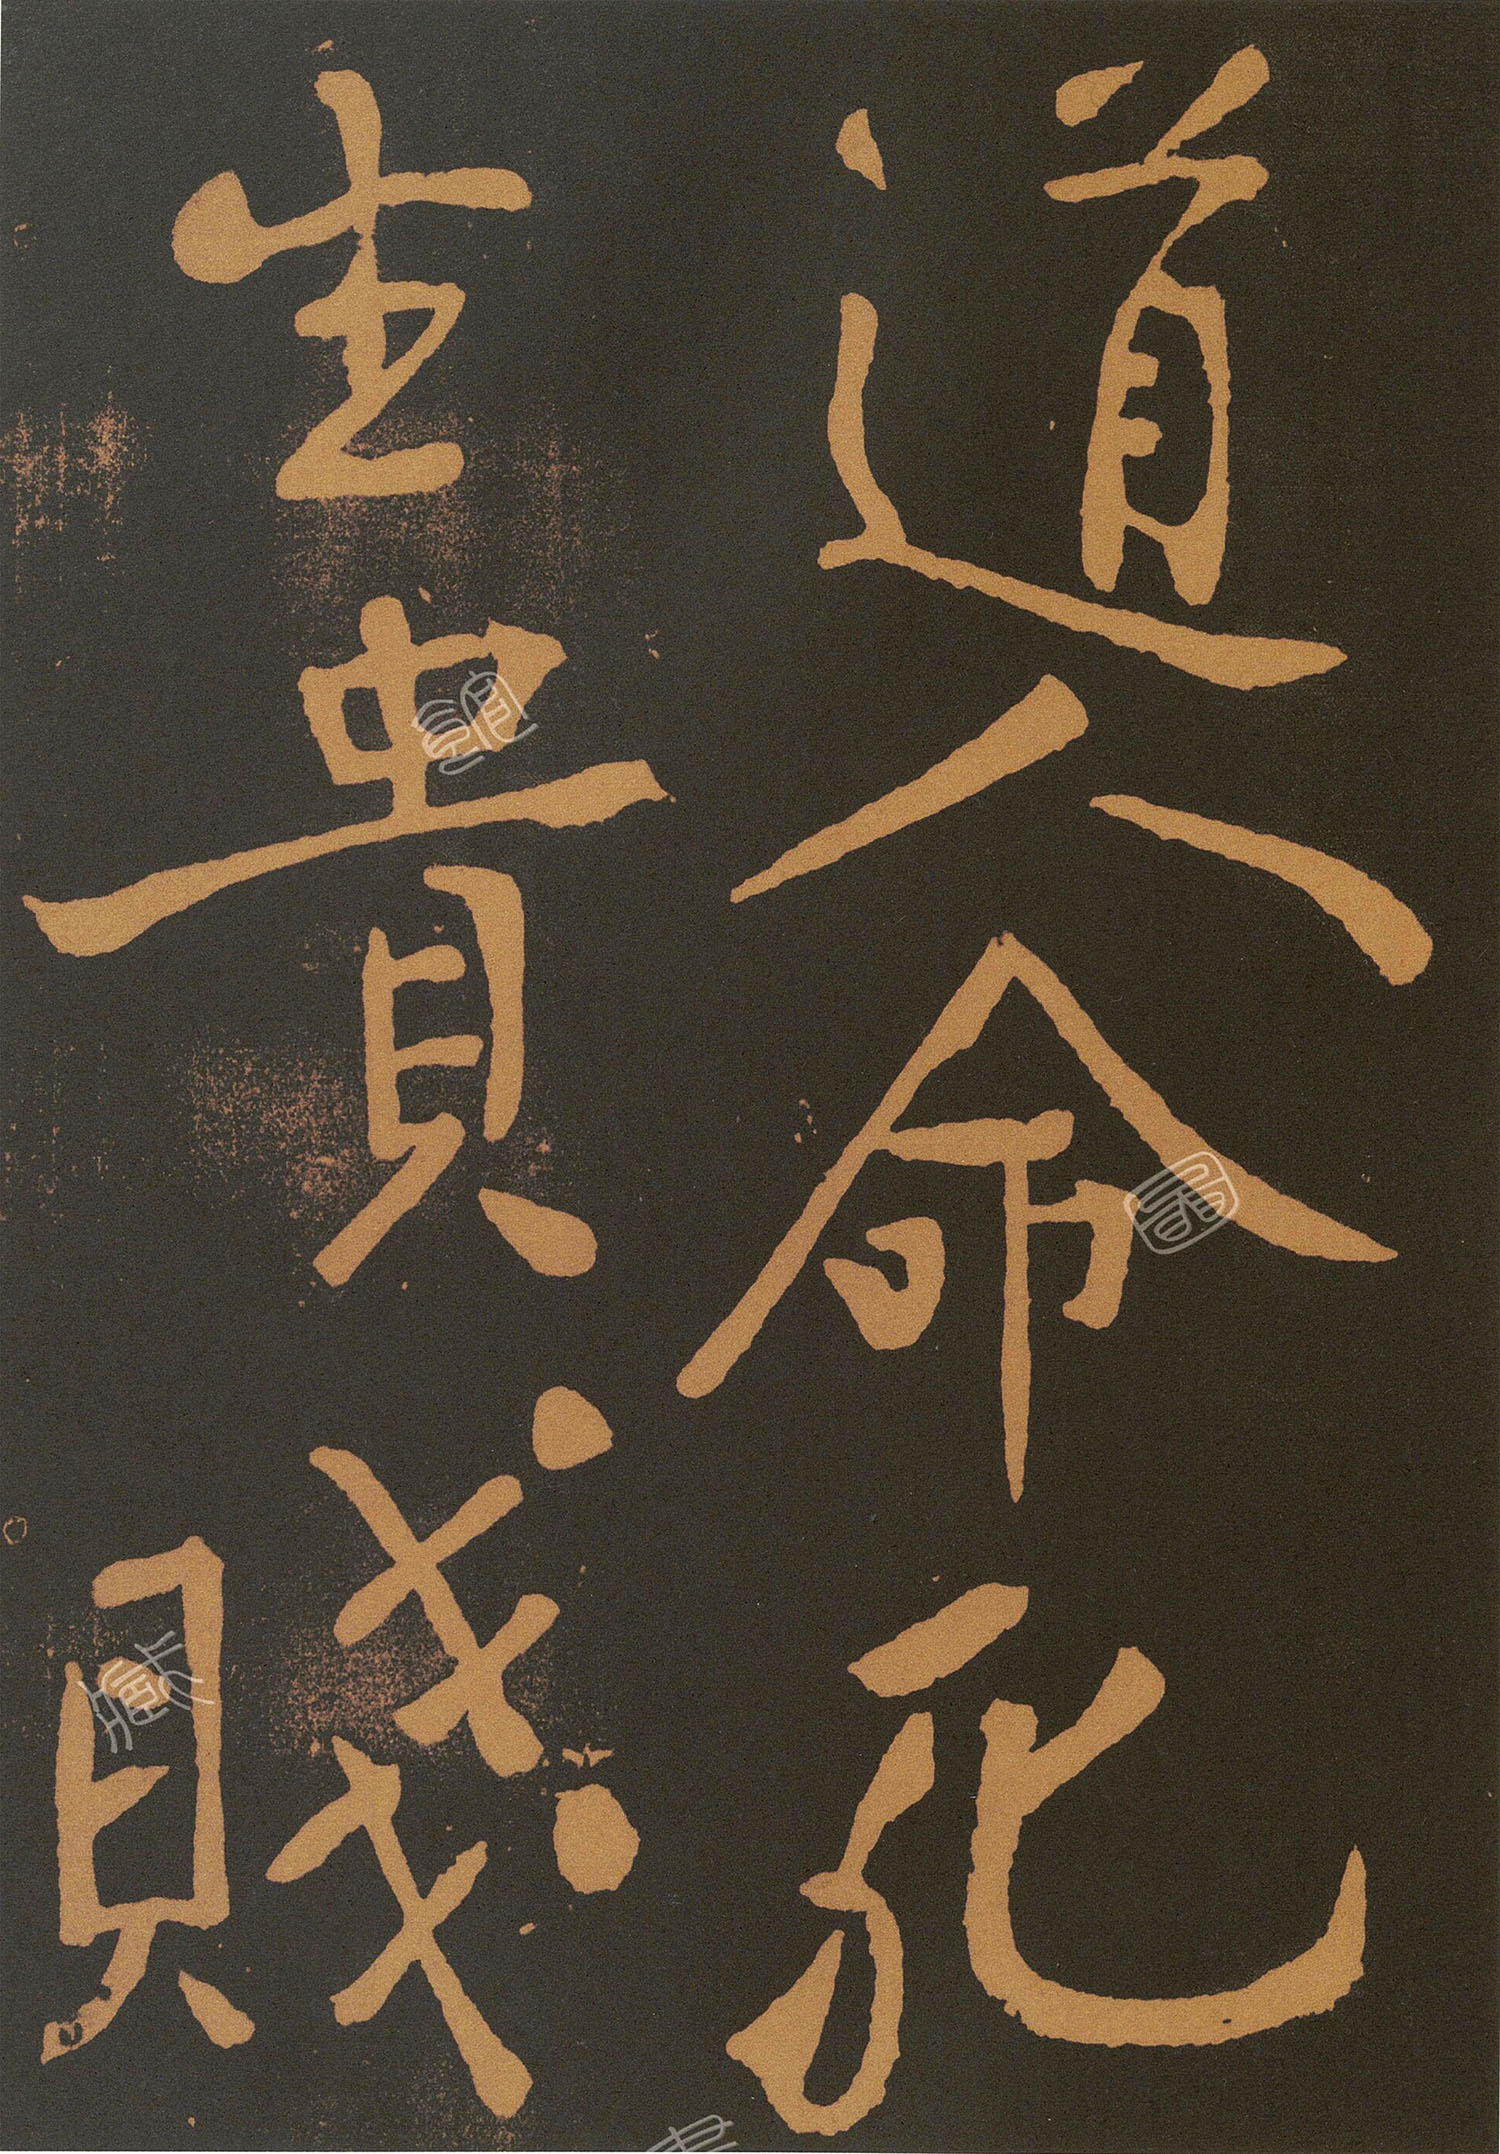 道人命死
生貴賤